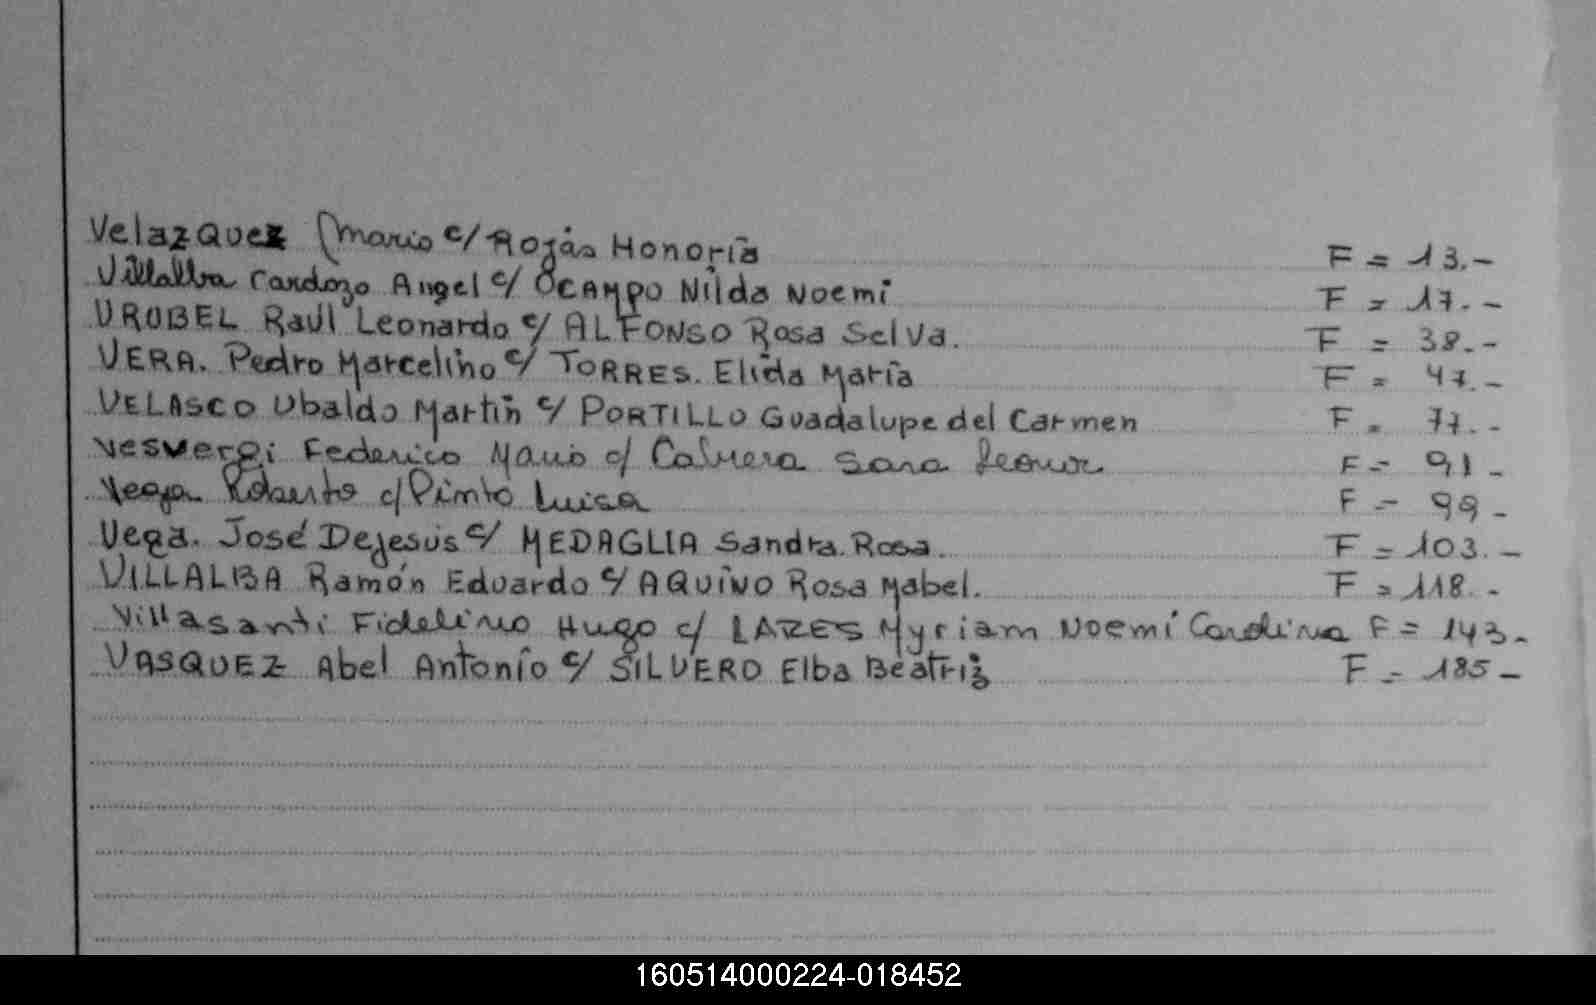 Velazquez Mario c/ Rojas Honoria F = 13.-
Villalba Cardozo Angel c/ OCAMPO Nilda Noemi F = 17.-
VRUBEL Raúl Leonardo c/ ALFONSO Rosa Selva. F = 38.-
VERA. Pedro Marcelino c/ TORRES. Elida María F = 47.-
VELASCO Ubaldo Martín c/ PORTILLO Guadalupe del Carmen F = 77.-
Vesvergi Federico Mario c/ Cabrera Sara Leonor F = 91-
Vega Roberto c/ Pinto Luisa F = 99-
Vega. José Dejesús c/ MEDAGLIA Sandra. Rosa. F = 103.-
VILLALBA Ramón Eduardo c/ AQUINO Rosa Mabel. F = 118.-
Villasanti Fidelino Hugo c/ LARES Myriam Noemí Carolina F = 143-
VASQUEZ Abel Antonio c/ SILVERO Elba Beatriz F = 185-
160514000224-018452